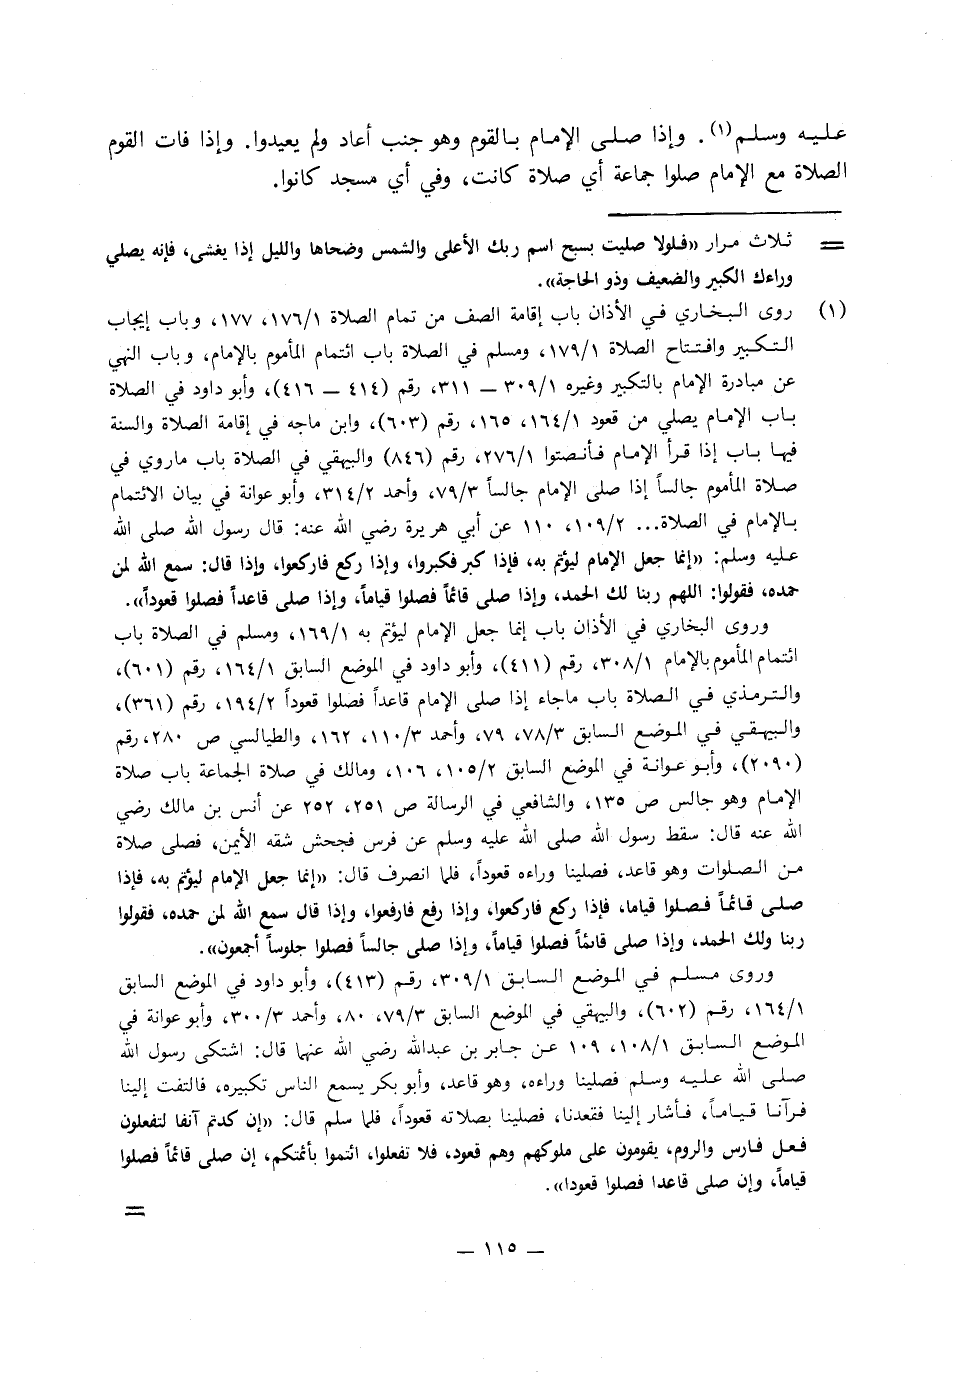 عليه وسلم(١). وإذا صلى الإمام بالقوم وهو جنب أعاد ولم يعيدوا. وإذا فات القوم
الصلاة مع الإمام صلوا جماعة أي صلاة كانت، وفي أي مسجد كانوا.
= ثلاث مرار «فلولا صليت بسبح اسم ربك الأعلى والشمس وضحاها والليل إذا يغشى، فإنه يصلي
وراءك الكبير والضعيف وذو الحاجة».
(١) روى البخاري في الأذان باب إقامة الصف من تمام الصلاة ١٧٦/١، ١٧٧، وباب إيجاب
التكبير وافتتاح الصلاة ١٧٩/١، ومسلم في الصلاة باب ائتمام المأموم بالإمام، وباب النهي
عن مبادرة الإمام بالتكبير وغيره ٣٠٩/١ ــ ٣١١، رقم (٤١٤ ــ ٤١٦)، وأبو داود في الصلاة
باب الإمام يصلي من قعود ١٦٤/١، ١٦٥، رقم (٦٠٣)، وابن ماجه في إقامة الصلاة والسنة
فيها باب إذا قرأ الإمام فأنصتوا ٢٧٦/١، رقم (٨٤٦) والبيهقي في الصلاة باب ماروي في
صلاة المأموم جالساً إذا صلى الإمام جالساً ٧٩/٣، وأحمد ٣١٤/٢، وأبو عوانة في بيان الائتمام
بالإمام في الصلاة... ١٠٩/٢، ١١٠ عن أبي هريرة رضي الله عنه: قال رسول الله صلى الله
عليه وسلم: «إنما جعل الإمام ليؤتم به، فإذا كبر فكبروا، وإذا ركع فاركعوا، وإذا قال: سمع الله لمن
حمده، فقولوا: اللهم ربنا لك الحمد، وإذا صلى قائماً فصلوا قياماً، وإذا صلى قاعداً فصلوا قعوداً».
وروى البخاري في الأذان باب إنما جعل الإمام ليؤتم به ١٦٩/١، ومسلم في الصلاة باب
ائتمام المأموم بالإمام ٣٠٨/١، رقم (٤١١)، وأبو داود في الموضع السابق ١٦٤/١، رقم (٦٠١)،
والترمذي في الصلاة باب ماجاء إذا صلى الإمام قاعداً فصلوا قعوداً ١٩٤/٢، رقم (٣٦١)،
والبيهقي في الموضع السابق ٧٨/٣، ٧٩، وأحمد ١١٠/٣، ١٦٢، والطيالسي ص ٢٨٠، رقم
(٢٠٩٠)، وأبو عوانة في الموضع السابق ١٠٥/٢، ١٠٦، ومالك في صلاة الجماعة باب صلاة
الإمام وهو جالس ص ١٣٥، والشافعي في الرسالة ص ٢٥١، ٢٥٢ عن أنس بن مالك رضي
الله عنه قال: سقط رسول الله صلى الله عليه وسلم عن فرس فجحش شقه الأيمن، فصلى صلاة
من الصلوات وهو قاعد، فصلينا وراءه قعوداً، فلما انصرف قال: «إنما جعل الإمام ليؤتم به، فإذا
صلى قائماً فصلوا قياما، فإذا ركع فاركعوا، وإذا رفع فارفعوا، وإذا قال سمع الله لمن حمده، فقولوا
ربنا ولك الحمد، وإذا صلى قائماً فصلوا قياماً، وإذا صلى جالساً فصلوا جلوساً أجمعون».
وروى مسلم في الموضع السابق ٣٠٩/١، رقم (٤١٣)، وأبو داود في الموضع السابق
١٦٤/١، رقم (٦٠٢)، والبيهقي في الموضع السابق ٧٩/٣، ٨٠، وأحمد ٣٠٠/٣، وأبو عوانة في
الموضع السابق ١٠٨/١، ١٠٩ عن جابر بن عبدالله رضي الله عنهما قال: اشتكى رسول الله
صلى الله عليه وسلم فصلينا وراءه، وهو قاعد، وأبو بكر يسمع الناس تكبيره، فالتفت إلينا
فرآنا قياماً، فأشار إلينا فقعدنا، فصلينا بصلاته قعوداً، فلما سلم قال: «إن كدتم آنفا لتفعلون
فعل فارس والروم، يقومون على ملوكهم وهم قعود، فلا تفعلوا، ائتموا بأئمتكم، إن صلى قائماً فصلوا
قياماً، وإن صلى قاعدا فصلوا قعودا».
=
ــ ١١٥ ــ